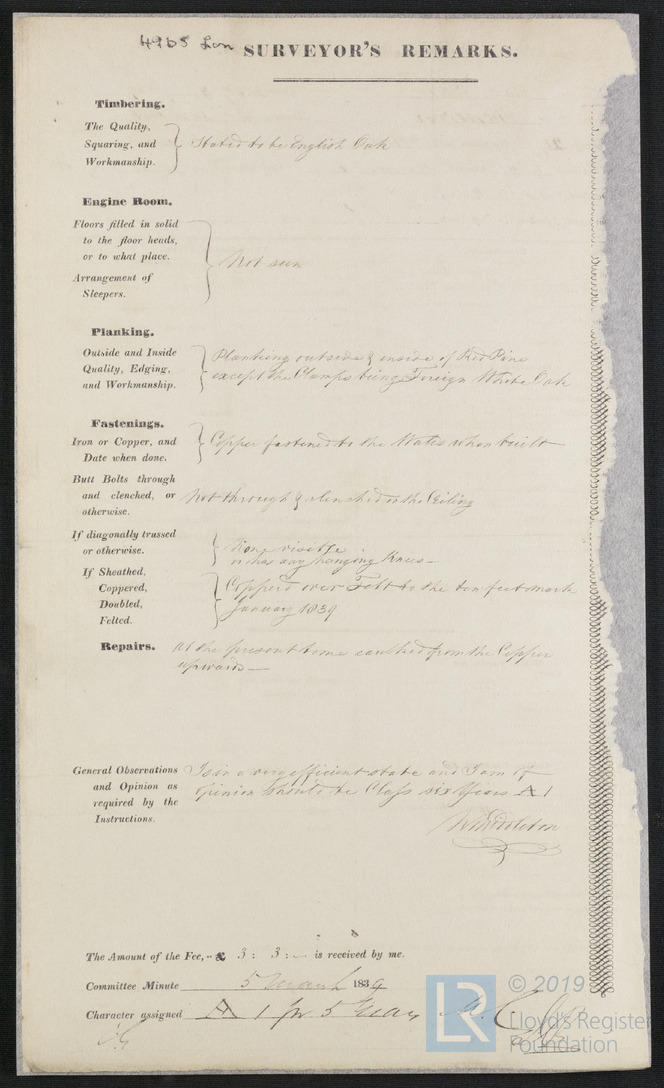 4965 Lon SURVEYOR'S REMARKS.
Timbering.
The Quality,
Squaring, and
Workmanship.
Stated to be English Oak
Engine Room.
Floors filled in solid
to the floor heads,
or to what place.
Arrangement of
Sleepers.
Not seen
Planking.
Outside and Inside
Quality, Edging,
and Workmanship.
Planking outside & inside of Red Pine
except the Clamps being Foreign White Oak
Fastenings.
Iron or Copper, and
Date when done.
Copper fastened to the Wales when built
Butt Bolts through
and clenched, or
otherwise.
Not through & clenched on the Ceiling
If diagonally trussed
or otherwise.
None visible
or has any hanging Knees
If Sheathed,
Coppered,
Doubled,
Felted.
Copper'd over Felt to the ten feet mark
January 1839
Repairs. At the present time caulked from the Copper
upwards
General Observations
and Opinion as
required by the
Instructions.
Is in a very efficient state and I am of
opinion should be Class six Years A 1
Middleton
The Amount of the Fee, £ 3 : 3 : - is received by me.
Committee Minute 5 March 1839
Character assigned A 1 for 5 Years
© 2019
LR
Lloyd's Register
Foundation